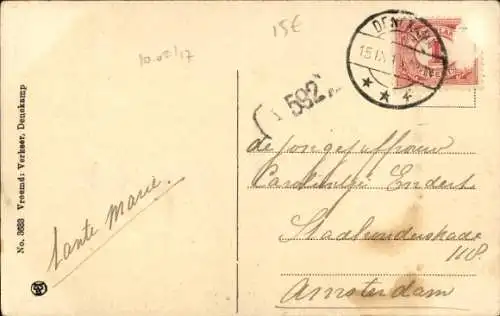 15€
10.08/17
DENEKAMP
15 IX
592
No. 3683 Vreemd: Verkeer, Denekamp
Tante Marie.
de jongejuffrouw
Carolientje Endert
Stadhouderskade
118.
Amsterdam